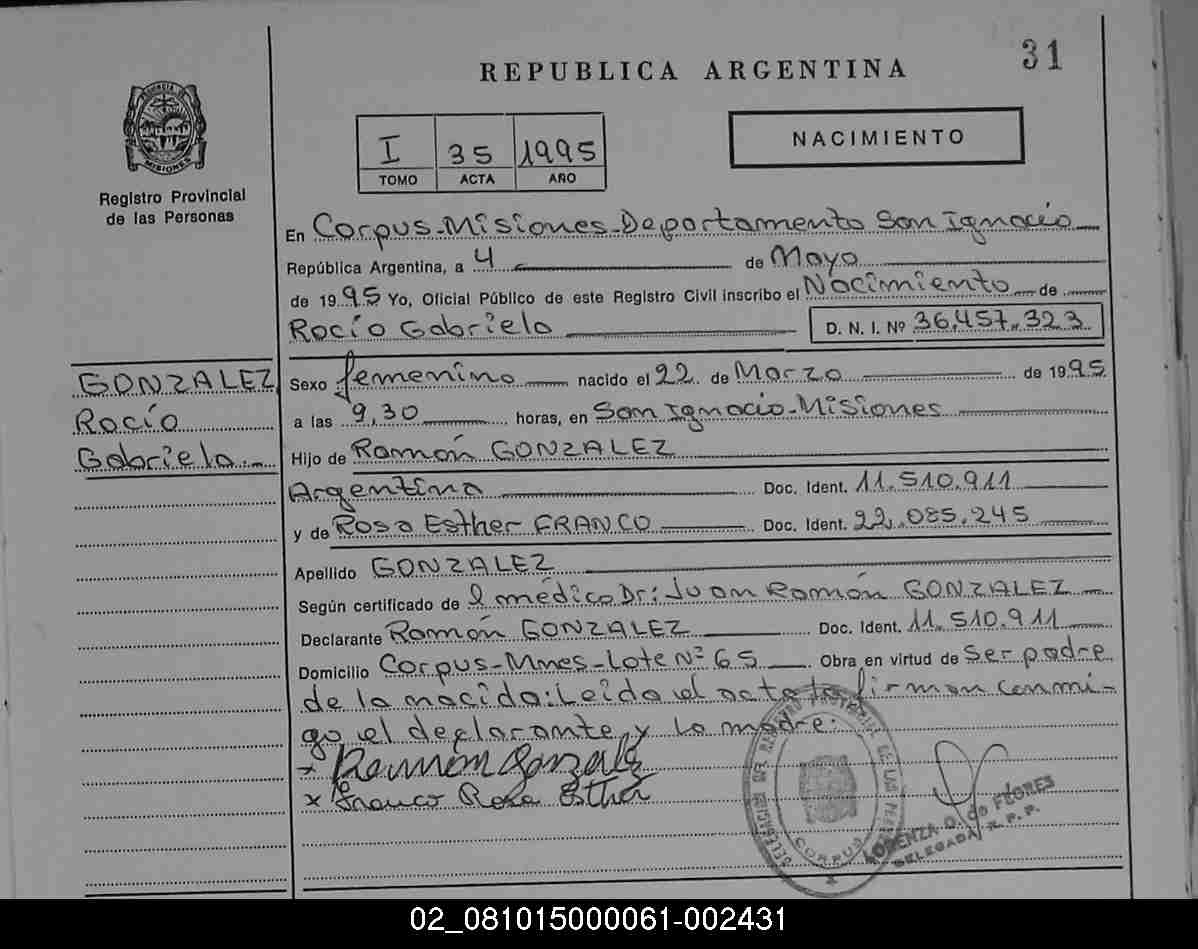 31
REPUBLICA ARGENTINA
PROVINCIA DE
MISIONES
Registro Provincial
de las Personas
I 35 1995
TOMO ACTA AÑO
NACIMIENTO
En Corpus-Misiones-Departamento San Ignacio
República Argentina, a 4 de Mayo
de 1995 Yo, Oficial Público de este Registro Civil inscribo el Nacimiento de
Rocío Gabriela D. N. I. Nº 36.457.323
GONZALEZ
Rocío
Gabriela.-
Sexo femenino nacido el 22 de Marzo de 1995
a las 9,30 horas, en San Ignacio-Misiones
Hijo de Ramón GONZALEZ
Argentina Doc. Ident. 11.510.911
y de Rosa Esther FRANCO Doc. Ident. 22.085.245
Apellido GONZALEZ
Según certificado de l médico Dr: Juan Ramón GONZALEZ
Declarante Ramón GONZALEZ Doc. Ident. 11.510.911
Domicilio Corpus-Mnes-Lote Nº 65 Obra en virtud de Ser padre
de la nacida: Leida el acta la firman conmi-
go el declarante y la madre:
x Ramon Gonzalez
x Franco Rosa Esther
DELEGACION DEL REGISTRO PROVINCIAL DE LAS PERSONAS
CORPUS
LORENZA O. de FLORES
DELEGADA R. P. P.
02_081015000061-002431